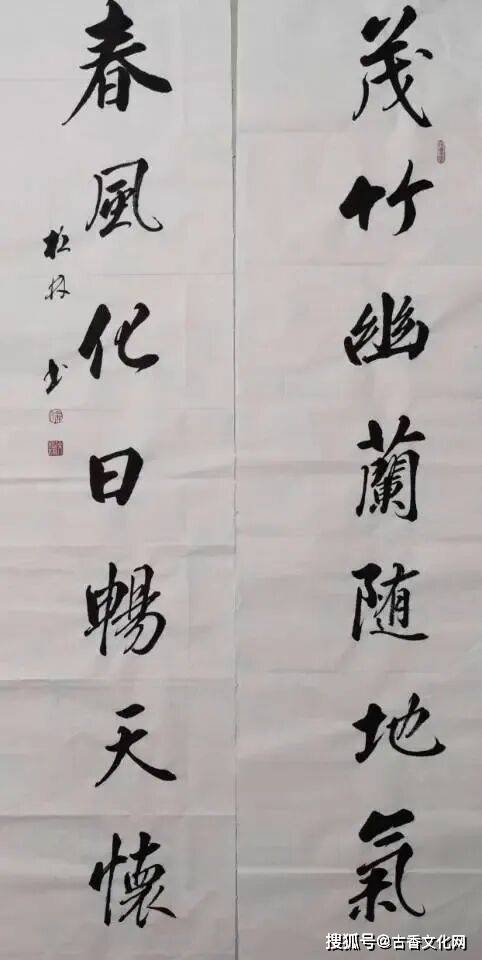 茂竹幽蘭随地氣
春風化日暢天懷
松林书
搜狐号@古香文化网